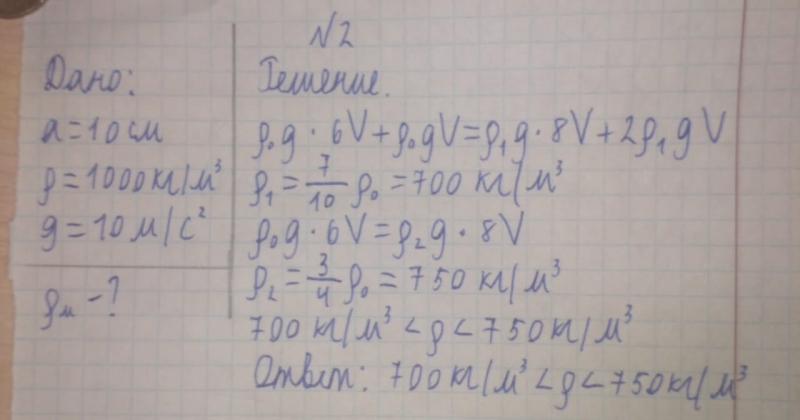 N2
Дано:
a=10 см
ρ=1000 кг/м³
g=10 м/с²
ρм -?
Решение.
ρ₀g · 6V+ρ₀gV=ρ₁g · 8V+2ρ₁gV
ρ₁ = 7/10 ρ₀ = 700 кг/м³
ρ₀g · 6V=ρ₂g · 8V
ρ₂ = 3/4 ρ₀ = 750 кг/м³
700 кг/м³ < ρ < 750 кг/м³
Ответ: 700 кг/м³ < ρ < 750 кг/м³